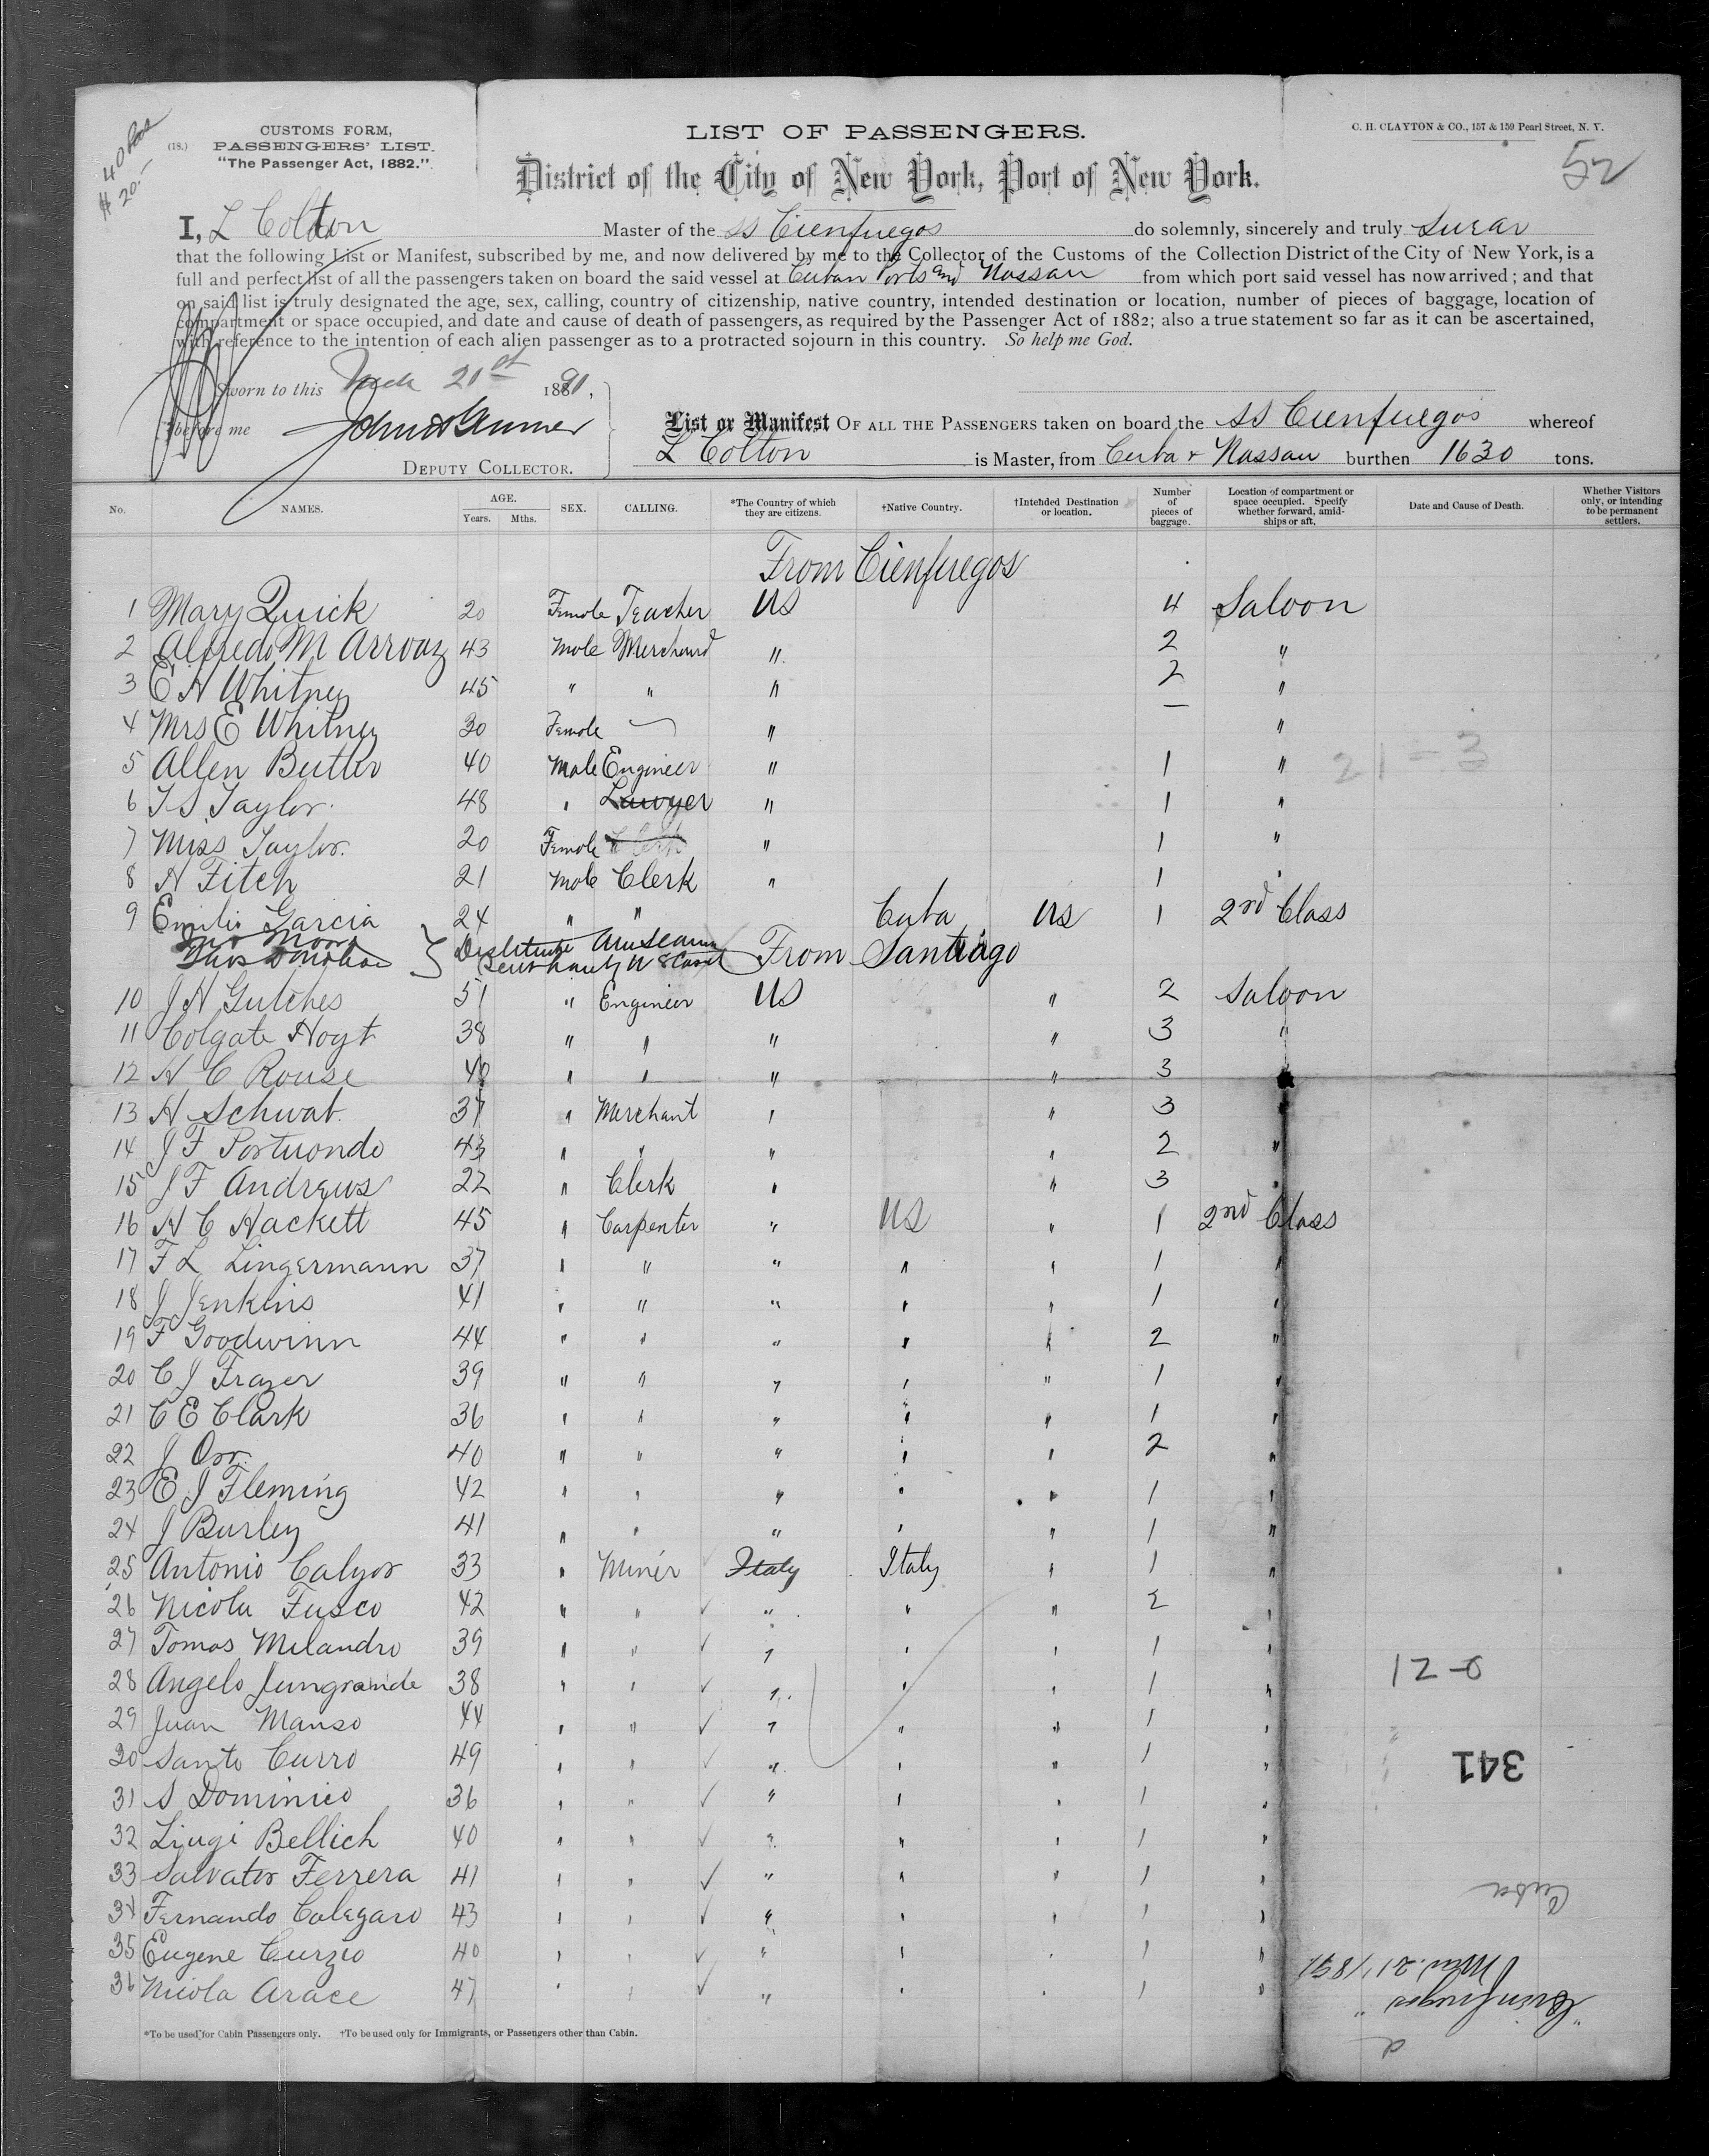 $40 
$20.—
(18.)
CUSTOMS FORM,
PASSENGERS' LIST.
"The Passenger Act, 1882."
LIST OF PASSENGERS.
C. H. CLAYTON & CO., 157 & 159 Pearl Street, N. Y.
52
District of the City of New York, Port of New York.
I, L Colton Master of the SS Cienfuegos do solemnly, sincerely and truly Swear
that the following List or Manifest, subscribed by me, and now delivered by me to the Collector of the Customs of the Collection District of the City of New York, is a
full and perfect list of all the passengers taken on board the said vessel at Cuban Ports and Nassau from which port said vessel has now arrived; and that
on said list is truly designated the age, sex, calling, country of citizenship, native country, intended destination or location, number of pieces of baggage, location of
compartment or space occupied, and date and cause of death of passengers, as required by the Passenger Act of 1882; also a true statement so far as it can be ascertained,
with reference to the intention of each alien passenger as to a protracted sojourn in this country. So help me God.
Sworn to this 21st 1891,
before me
DEPUTY COLLECTOR.
List or Manifest OF ALL THE PASSENGERS taken on board the SS Cienfuegos whereof
L Colton is Master, from Cuba & Nassau burthen 1630 tons.
No. NAMES. AGE. Years. Mths. SEX. CALLING. *The Country of which they are citizens. †Native Country. †Intended Destination or location. Number of pieces of baggage. Location of compartment or space occupied. Specify whether forward, amidships or aft. Date and Cause of Death. Whether Visitors only, or intending to be permanent settlers.
From Cienfuegos
1 Mary Quick 20 Female Teacher US 4 Saloon
2 Alfredo M Arroaz 43 Male Merchand " 2 "
3 E H Whitney 45 " " " 2 "
4 Mrs E Whitney 30 Female — " — "
5 Allen Butler 40 Male Engineer " 1 " 21-3
6 T S Taylor. 48 " Lawyer " 1 "
7 Miss Taylor. 20 Female " 1 "
8 H Fitch 21 Male Clerk " 1 "
9 Emilio Garcia 24 " " Cuba US 1 2nd Class
Destitute
From Santiago
10 J H Gutches 51 " Engineer US " 2 Saloon
11 Colgate Hoyt 38 " " " " 3 "
12 H C Rouse 40 " " " " 3 "
13 H Schwab 37 " Merchant " " 3 "
14 J F Portuondo 43 " " " " 2 "
15 J F Andrews 22 " Clerk " " 3
16 H C Hackett 45 " Carpenter " US " 1 2nd Class
17 F L Lingermann 37 " " " " " 1 "
18 J Jenkins 41 " " " " " 1 "
19 F Goodwinn 44 " " " " " 2 "
20 C J Frazer 39 " " " " " 1 "
21 C E Clark 36 " " " " " 1 "
22 J Orr. 40 " " " " " 2 "
23 E J Fleming 42 " " " " " 1 "
24 J Burley 41 " " " " " 1 "
25 Antonio Calyor 33 " Miner Italy Italy " 1 "
26 Nicola Fusco 42 " " " " " 2 "
27 Tomas Milandro 39 " " " " " 1 "
28 Angelo Jungrande 38 " " " " " 1 "
12-0
29 Juan Manso 44 " " " " " 1 "
30 Santo Curro 49 " " " " " 1 "
341
31 S Dominico 36 " " " " " 1 "
32 Liugi Bellich 40 " " " " " 1 "
33 Salvator Ferrera 41 " " " " " 1 "
Cuba
34 Fernando Calegaro 43 " " " " " 1 "
35 Eugene Curzio 40 " " " " " 1 "
Mar. 21, 1891
36 Nicola Arace 47 " " " " " 1 "
"Cienfuegos"
*To be used for Cabin Passengers only. †To be used only for Immigrants, or Passengers other than Cabin.